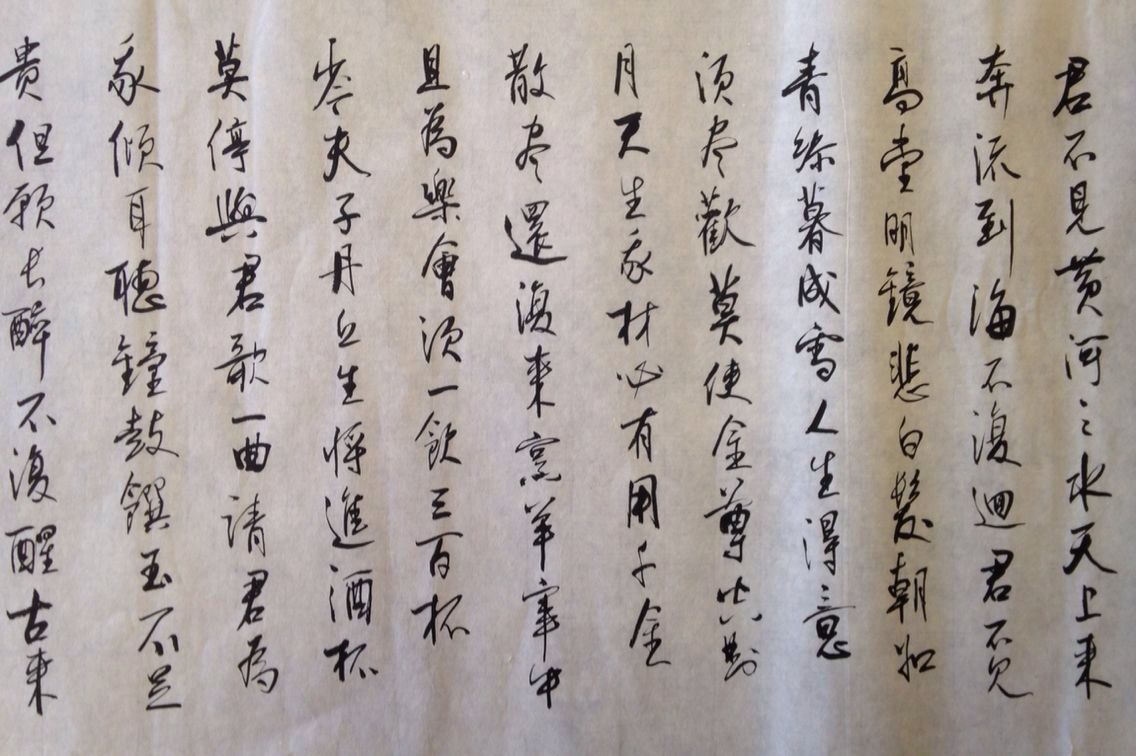 君不見黄河之水天上来
奔流到海不復迴君不見
高堂明鏡悲白髮朝如
青絲暮成雪人生得意
須尽歡莫使金尊空對
月天生我材必有用千金
散尽還復来烹羊宰牛
且為樂會須一飲三百杯
岑夫子丹丘生将進酒杯
莫停與君歌一曲請君為
我傾耳聽鐘鼓饌玉不足
貴但願长醉不復醒古来